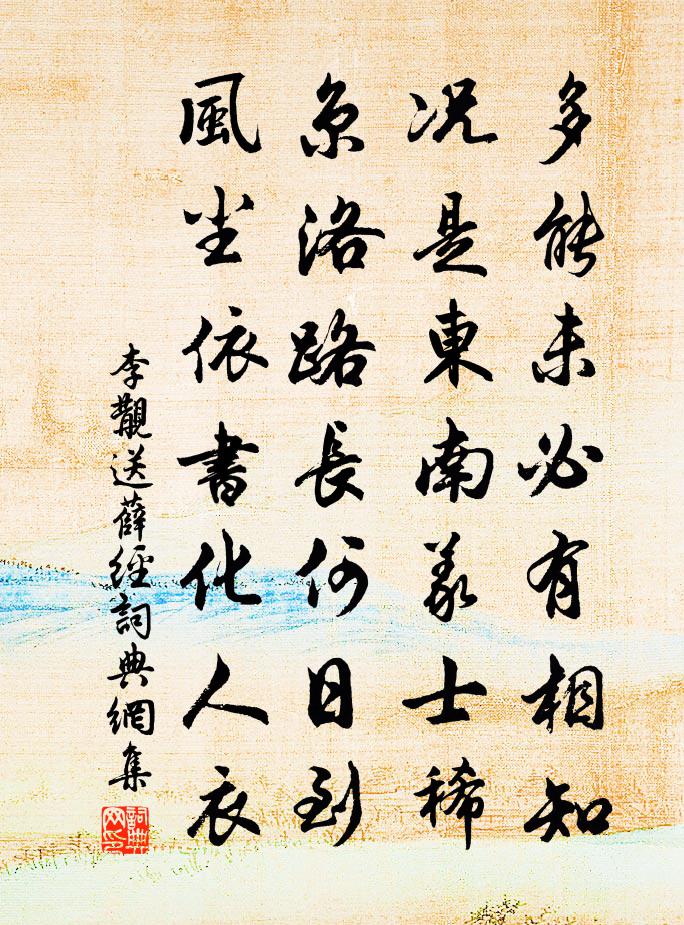 多能未必有相知
况是東南義士稀
京洛路長何日到
風尘依書化人衣
李覯送薛經詞典網集
詞典
网印